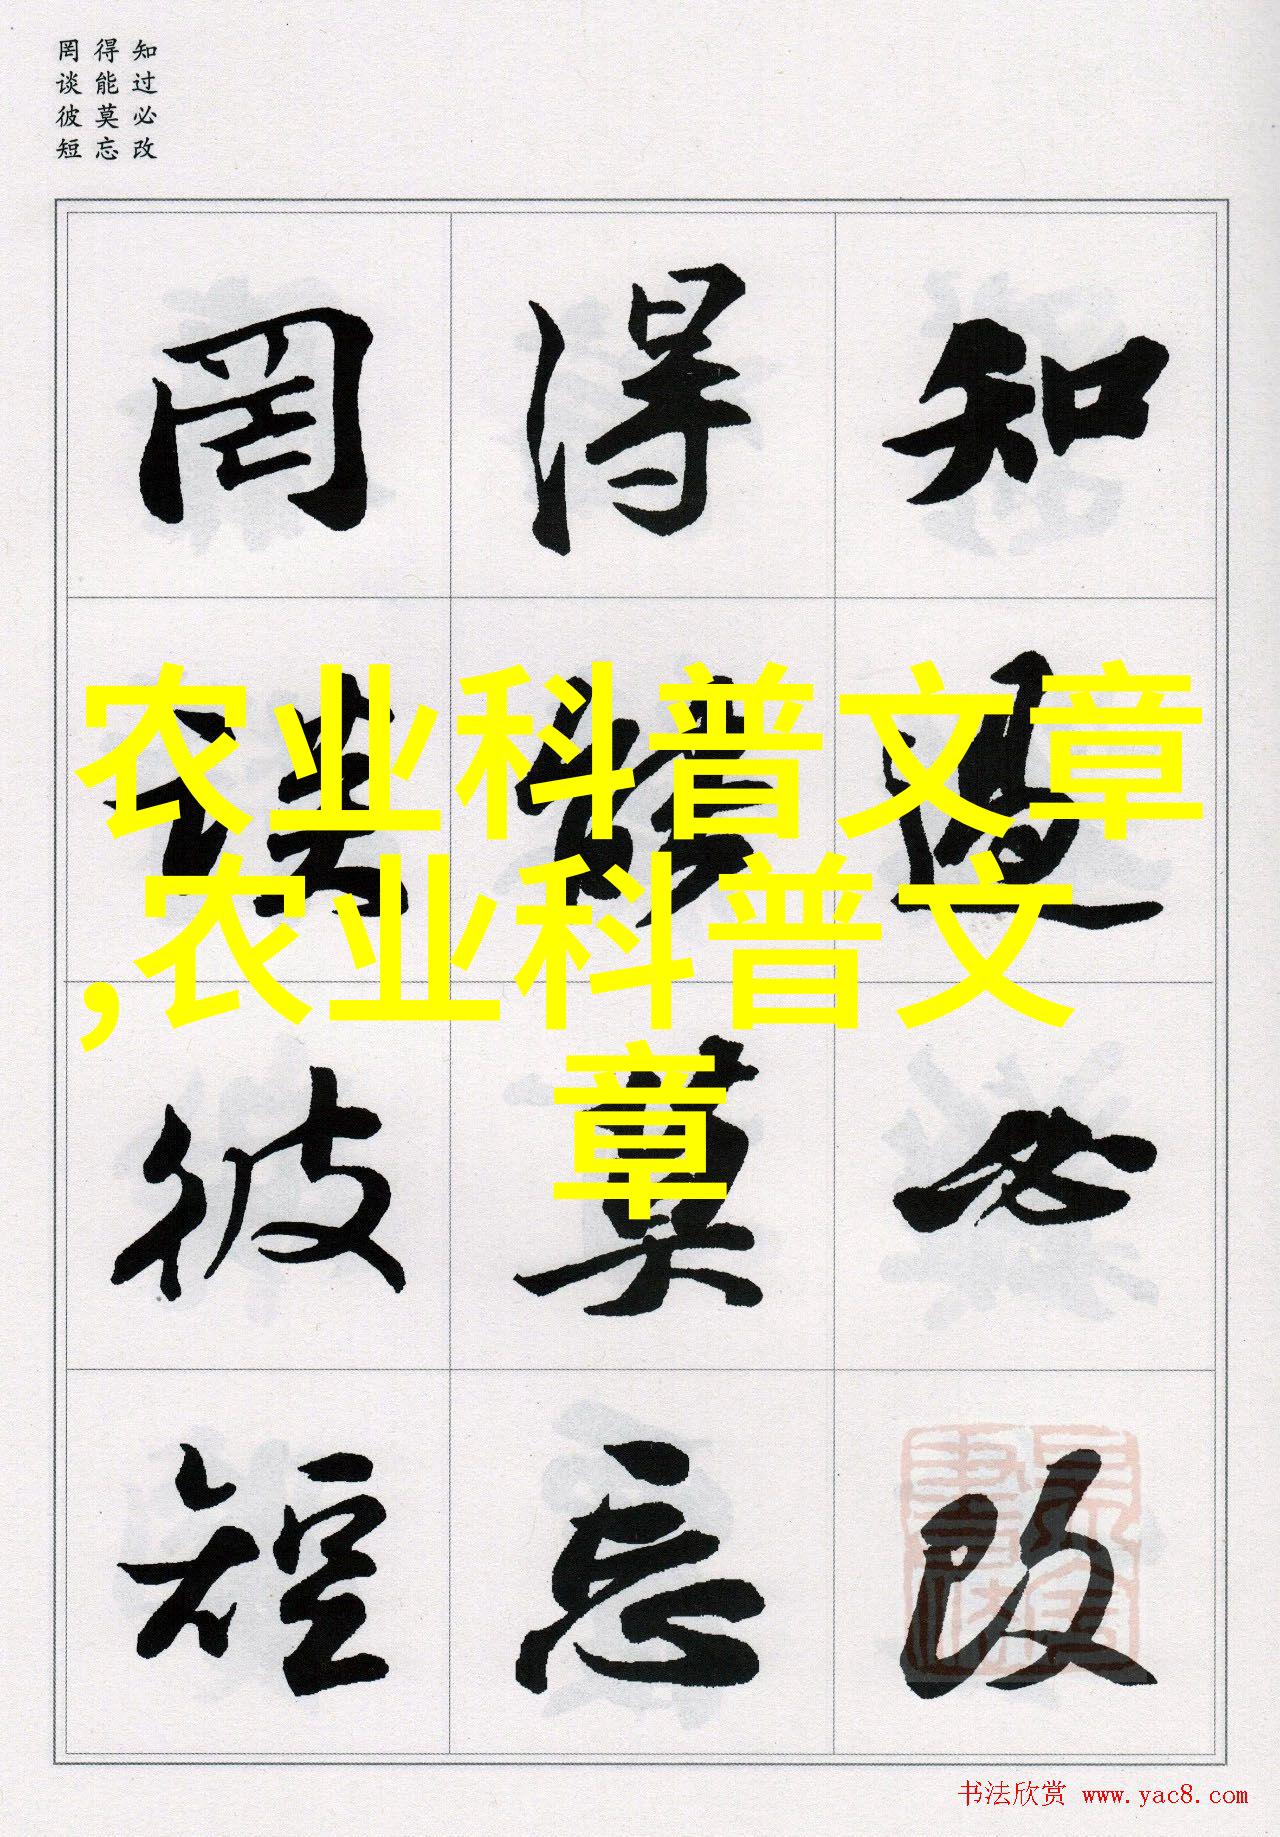 知过必改
得能莫忘
罔谈彼短
知过必改
得能莫忘
罔谈彼短
农业科普文章
,农业科普文
章
书法欣赏 www.yac8.com